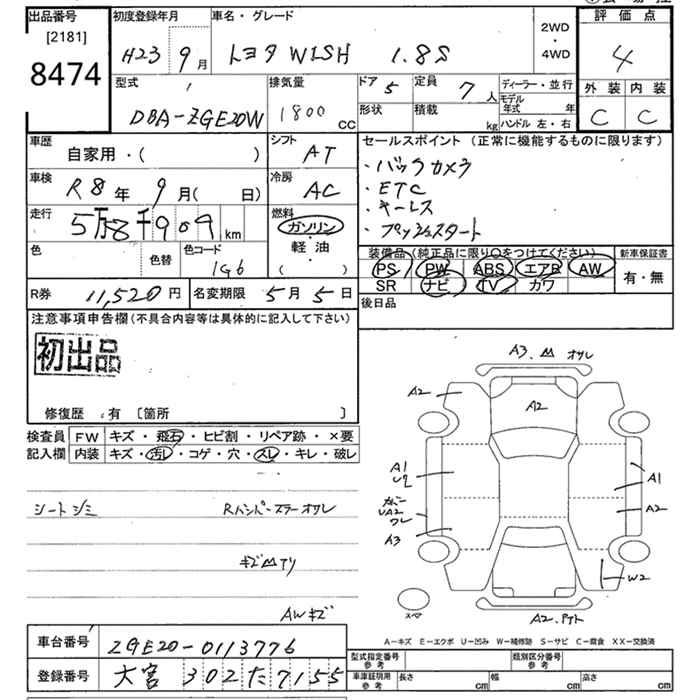 出品番号 初度登録年月 車名・グレード 2WD ・ 4WD 評価点
[2181]
8474
H23 9月 トヨタ WISH 1.8S 4
型式 排気量 ドア 5 定員 7人 ディーラー・並行 外装 内装
DBA-ZGE20W 1800 CC 形状 積載 kg モデル年式 年 C C
ハンドル 左・右
車歴 シフト セールスポイント (正常に機能するものに限ります)
自家用・( ) AT ・バックカメラ
車検 冷房 ・ETC
R8年 9月( 日) AC ・キーレス
走行 燃料 ・プッシュスタート
5万8千909km ガソリン
色 色替 色コード 軽油 装備品(純正品に限り○をつけてください) 新車保証書
1G6 ( ・ ) PS PW ABS エアB AW 有・無
SR ナビ TV カワ
R券 11,520円 名変期限 5月5日 後日品
注意事項申告欄(不具合内容等は具体的に記入して下さい)
初出品
修復歴・有 [箇所 ]
検査員 FW キズ・飛石・ヒビ割・リペア跡・×要
記入欄 内装 キズ・汚レ・コゲ・穴・スレ・キレ・破レ
シートシミ Rバンパースラーオサレ
キズ凹アリ
AWキズ
A3.凹 オサレ
A2
A2
A1
A1
A2
UA2
ワレ
A3
W2
スペア
A2.
A-キズ E-エクボ U-凹み W-補修跡 S-サビ C-腐食 XX-交換済
車台番号 ZGE20-0113776
登録番号 大宮 302 た 7155
型式指定番号 参考 類別区分番号 参考
車庫証明用 参考 長さ cm 幅 cm 高さ cm